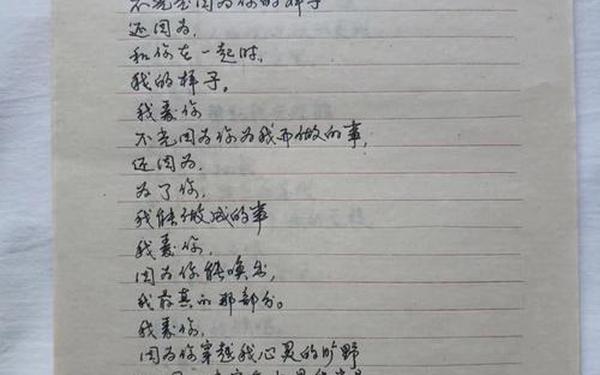 不光因为你的样子
还因为,
和你在一起时,
我的样子。
我爱你
不光因为你为我而做的事,
还因为,
为了你,
我能做成的事
我爱你,
因为你能唤出,
我最真的那部分。
我爱你,
因为你穿越我心灵的旷野